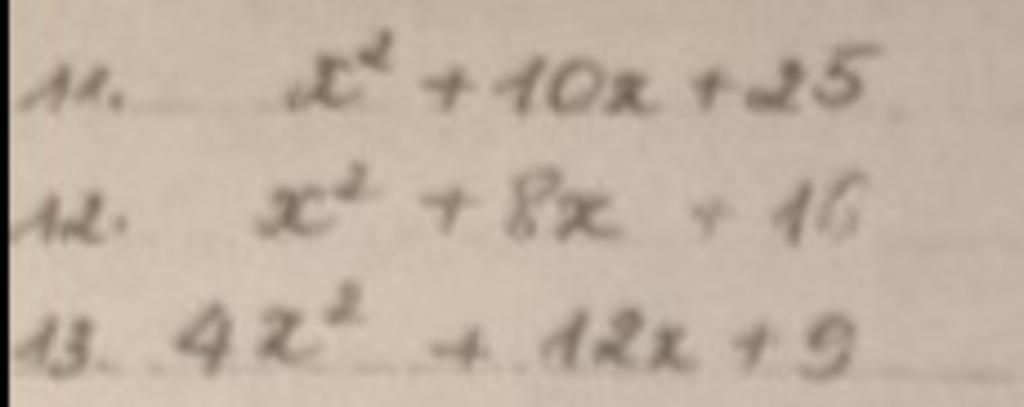 11. x² + 10x + 25
12. x² + 8x + 16
13. 4x² + 12x + 9